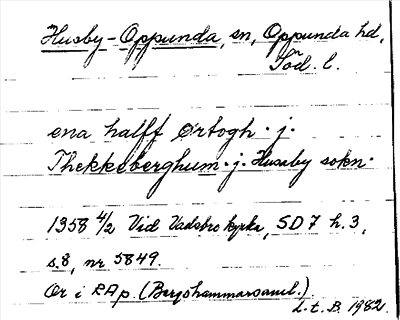 Husby-Oppunda, sn, Oppunda hd,
Söd. l.
ena halff ørtogh · j ·
Thekkeberghum · j · Husaby sokn ·
1358 4/2 Vid Vadsbro kyrka, SD 7 h. 3,
s. 8, nr 5849.
Or i RA p. (Bergshammarsaml.)
L. t. B. 1982.